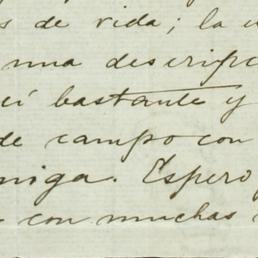 de vida; la
una descripc
bastante y
de campo con
miga. Espero
con muchas